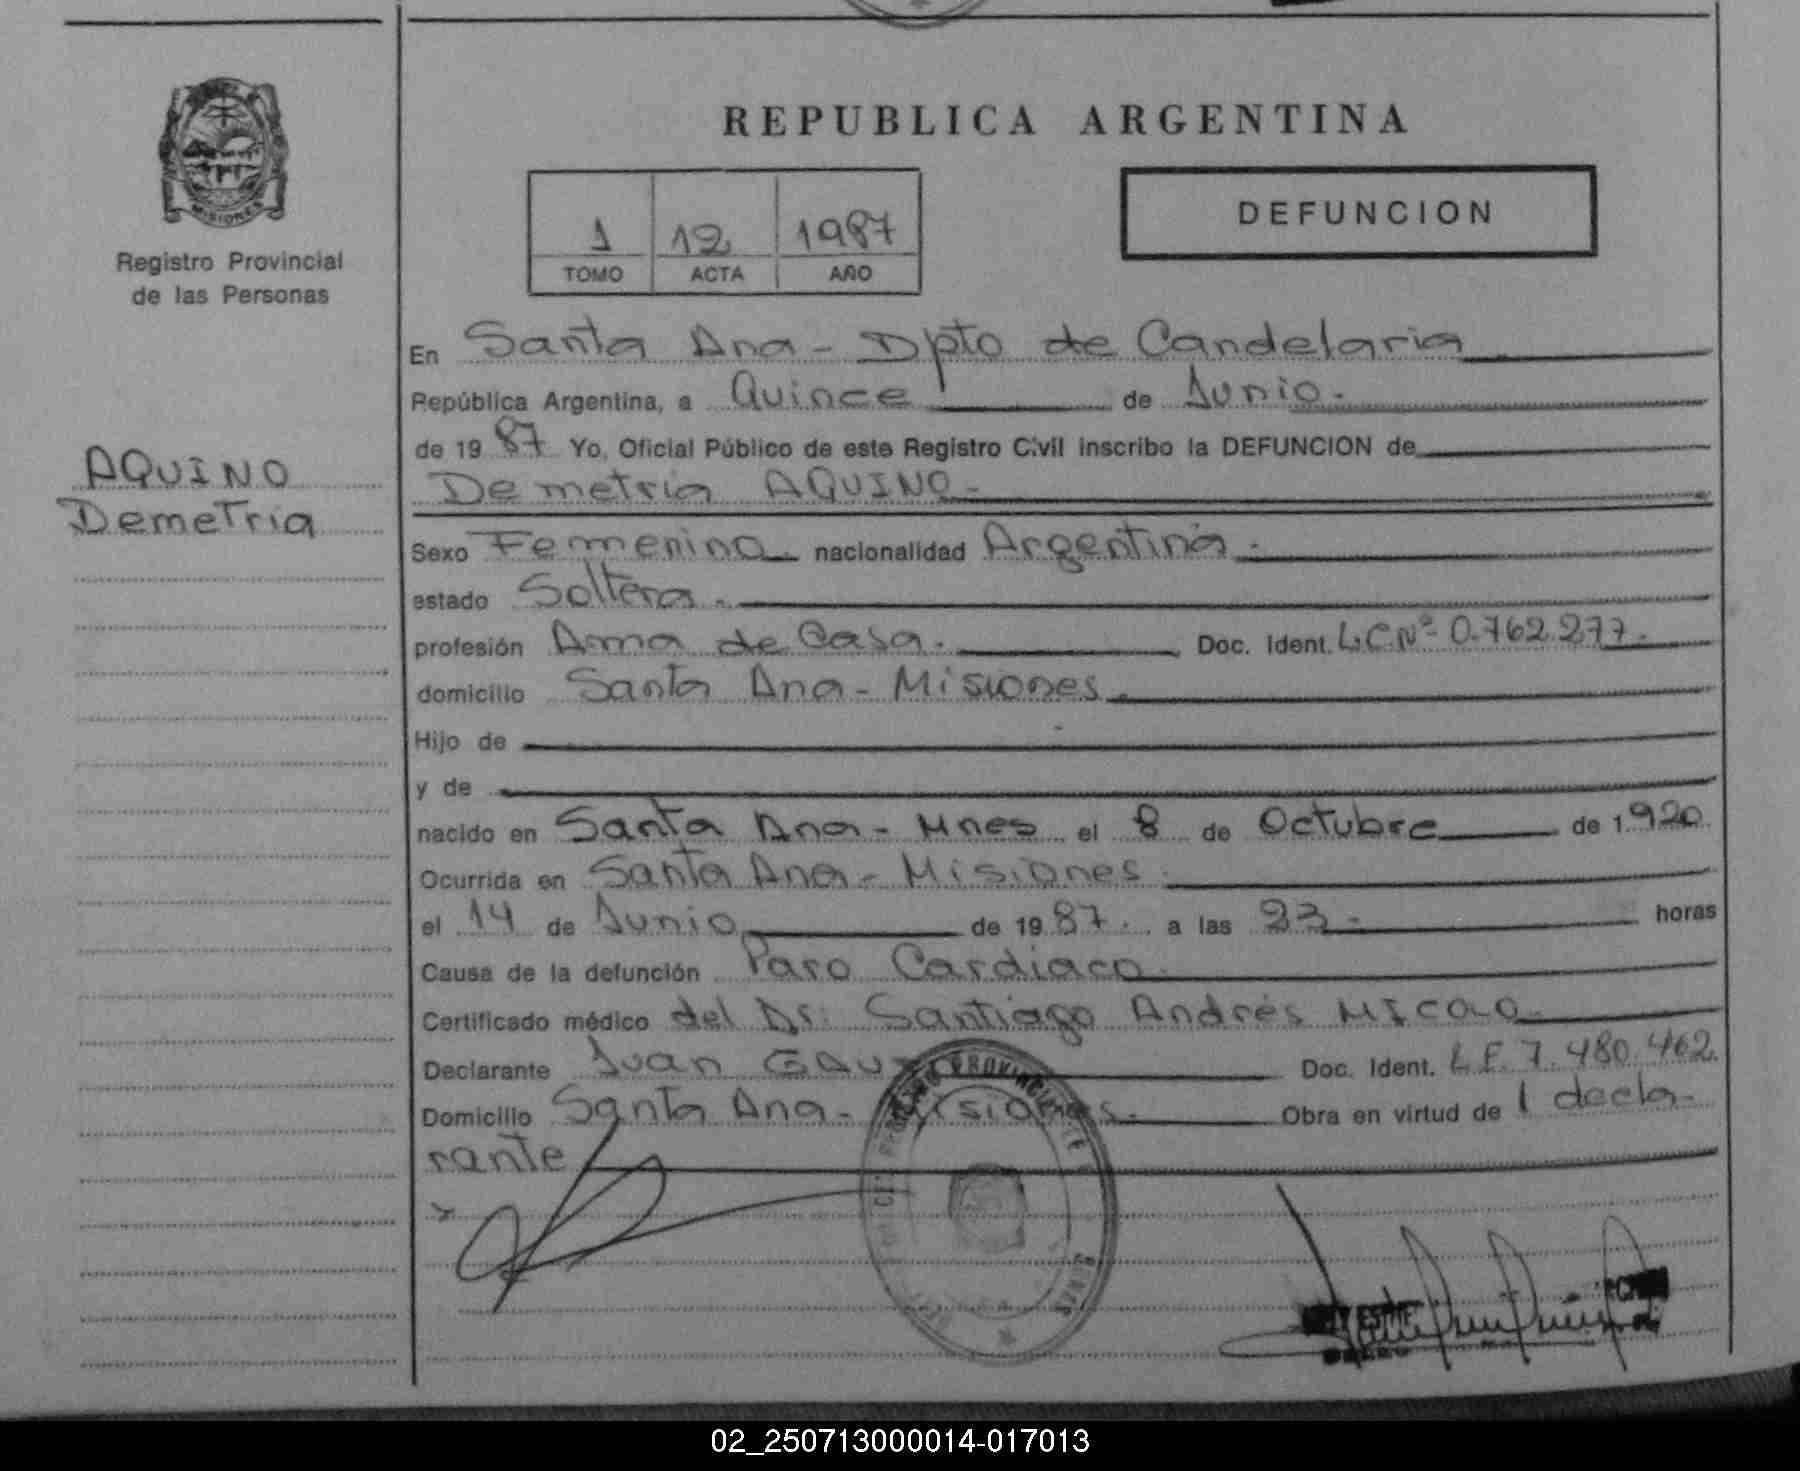 MISIONES
Registro Provincial
de las Personas
AQUINO
Demetria
REPUBLICA ARGENTINA
1 12 1987
TOMO ACTA AÑO
DEFUNCION
En Santa Ana - Dpto de Candelaria
República Argentina, a Quince de Junio.
de 1987 Yo, Oficial Público de este Registro Civil inscribo la DEFUNCION de
Demetria AQUINO.-
Sexo Femenino nacionalidad Argentina.
estado Soltera.
profesión Ama de Casa. Doc. Ident. L.C.Nº 0.762.277.
domicilio Santa Ana - Misiones.
Hijo de
y de
nacido en Santa Ana - Mnes el 8 de Octubre de 1920
Ocurrida en Santa Ana - Misiones.
el 14 de Junio de 1987. a las 23.- horas
Causa de la defunción Paro Cardiaco.
Certificado médico del Dr. Santiago Andrés MICOLO.
Declarante Juan Doc. Ident. L.E. 7.480.462.
Domicilio Santa Ana - Misiones. Obra en virtud de 1 decla-
rante
PROVINCIAL DE
02_250713000014-017013